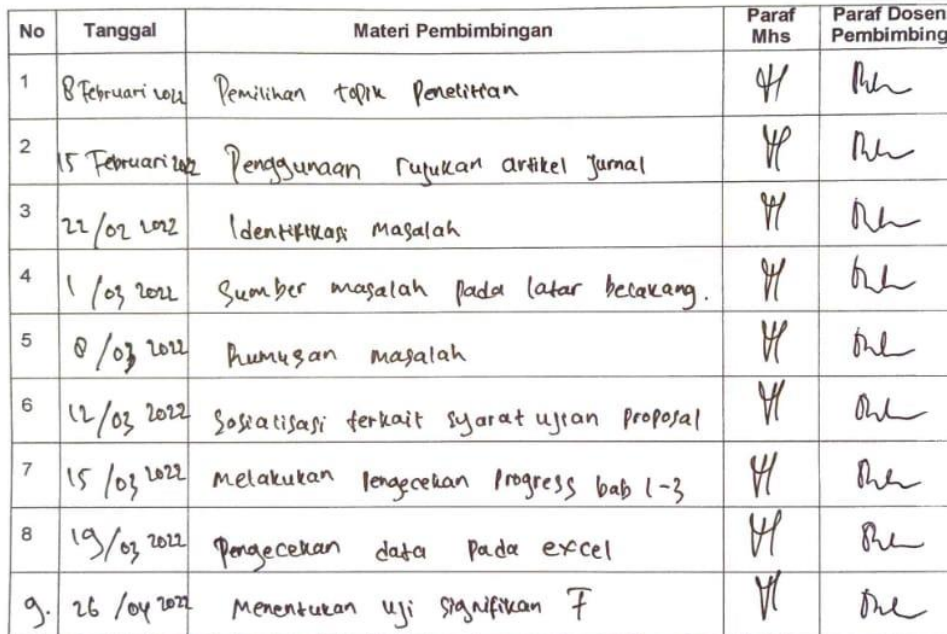 No Tanggal Materi Pembimbingan Paraf Mhs Paraf Dosen Pembimbing
1 8 Februari 2022 Pemilihan topik Penelitian
2 15 Februari 2022 Penggunaan rujukan artikel jurnal
3 22/02 2022 Identifikasi masalah
4 1/03 2022 Sumber masalah pada latar belakang.
5 8/03 2022 Rumusan masalah
6 12/03 2022 Sosialisasi terkait syarat ujian proposal
7 15/03 2022 Melakukan Pengecekan Progress bab 1-3
8 19/03 2022 Pengecekan data pada excel
9. 26/04 2022 Menentukan uji signifikan F